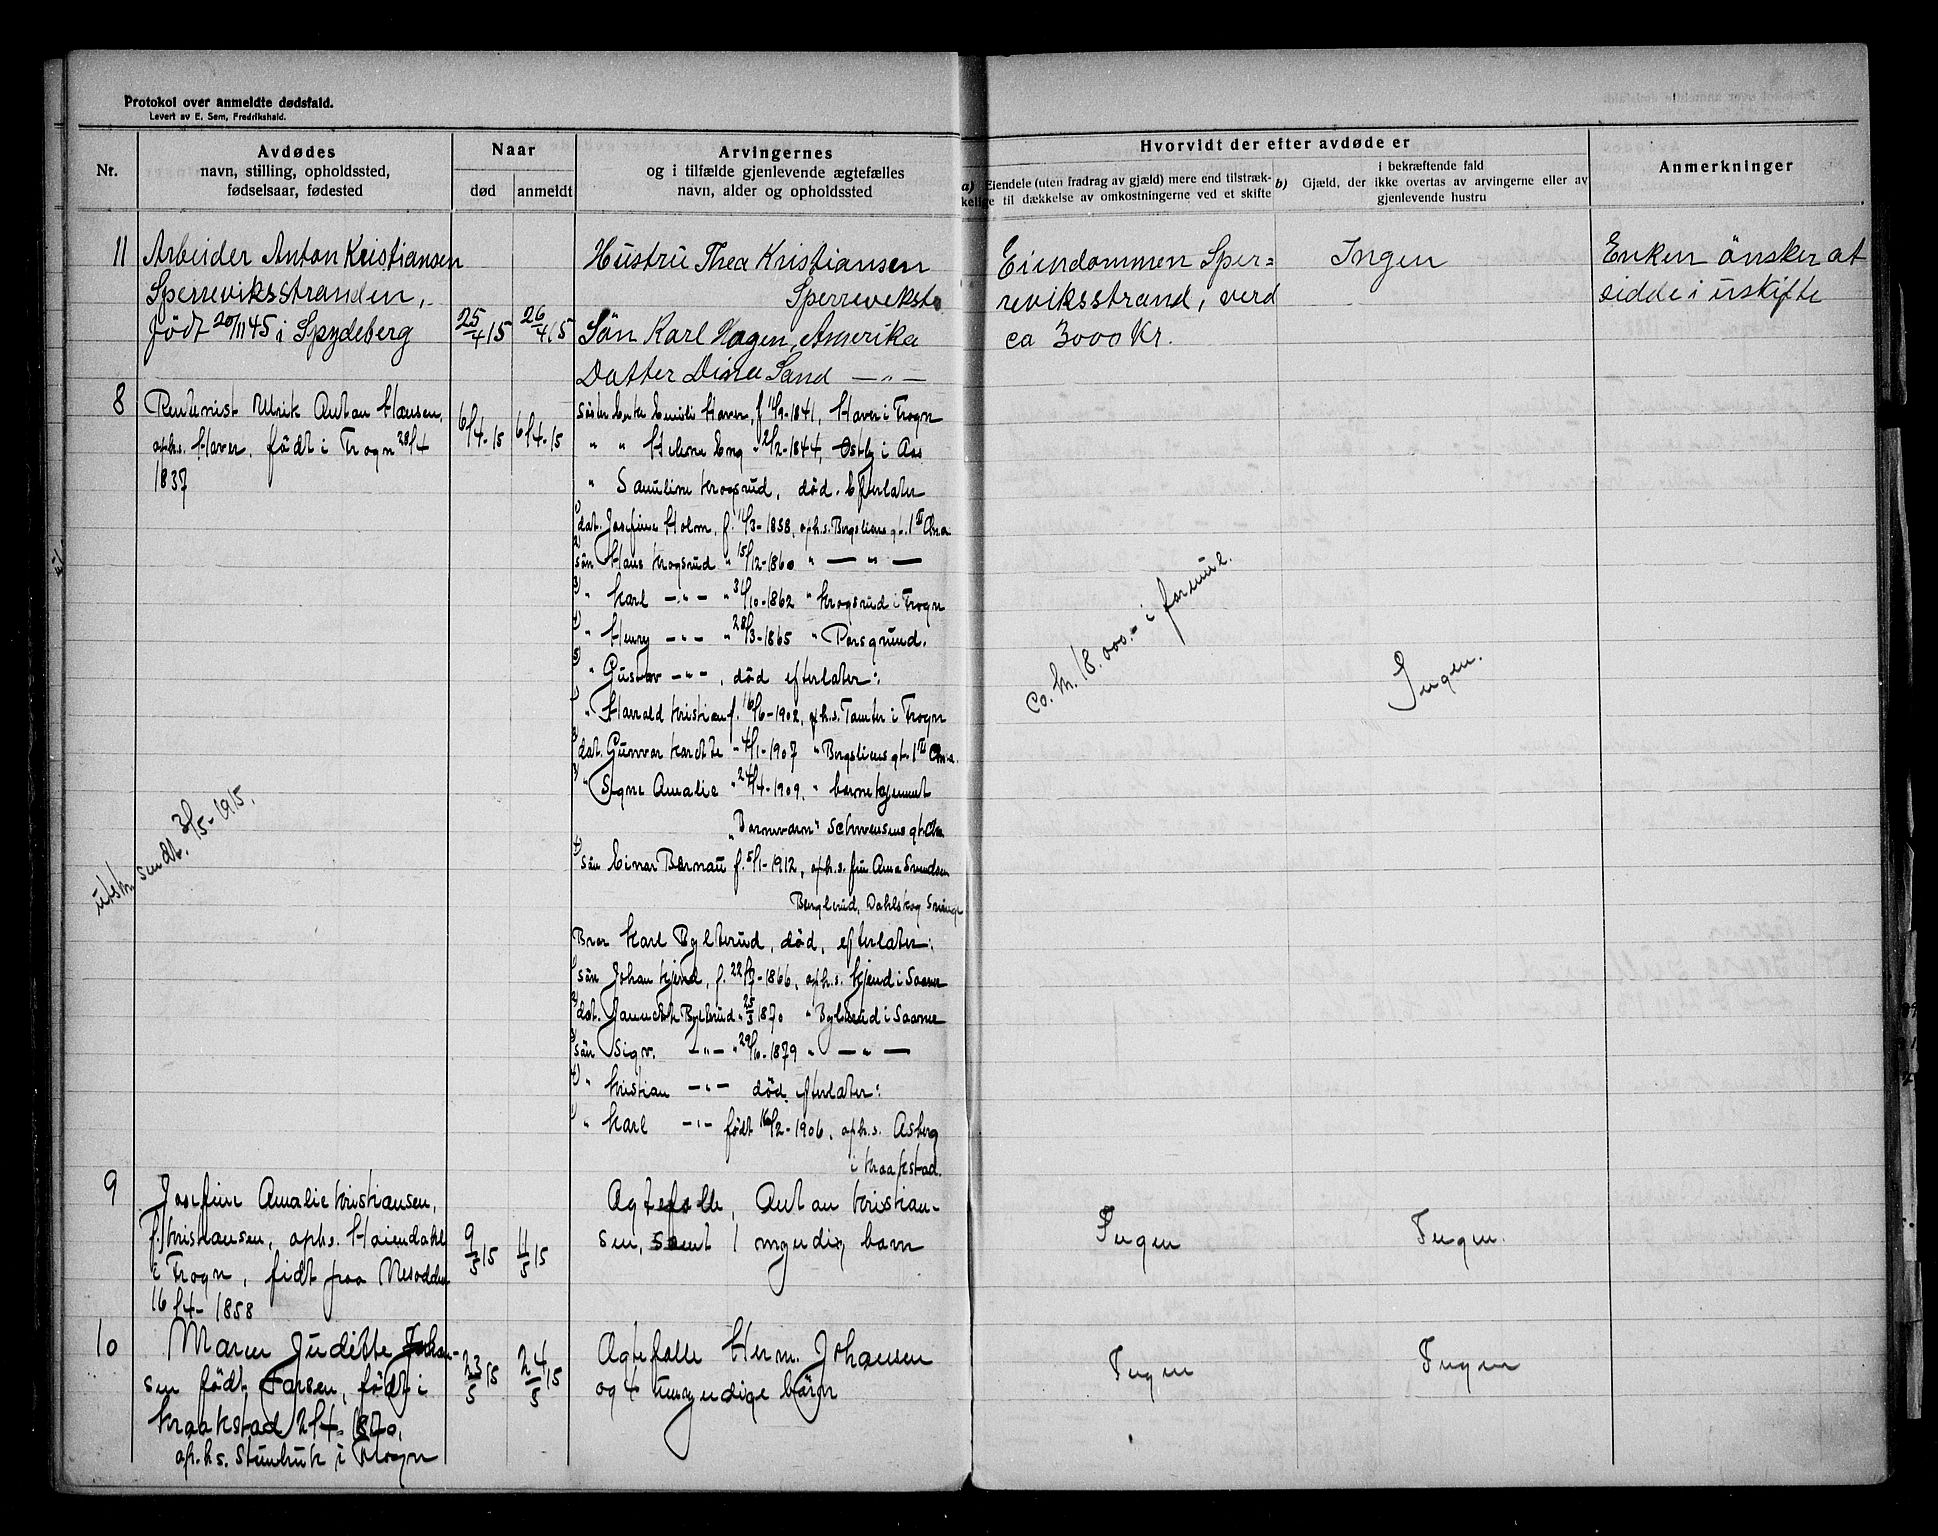 Protokol over anmeldte dødsfald.
Levert av E. Sem, Fredrikshald.
Nr.
Avdødes
navn, stilling, opholdssted,
fødselsaar, fødested
Naar
død
anmeldt
Arvingernes
og i tilfælde gjenlevende ægtefælles
navn, alder og opholdssted
Hvorvidt der efter avdøde er
a) Eiendele (uten fradrag av gjæld) mere end tilstræk-
kelige til dækkelse av omkostningerne ved et skifte
b)
i bekræftende fald
Gjæld, der ikke overtas av arvingerne eller av
gjenlevende hustru
Anmerkninger
11
Arbeider Anton Kristiansen
Sperreviksstranden,
født 20/11 45 i Spydeberg
25/4 15
26/4 15
Hustru Thea Kristiansen
Sperrevikstr
Sön Karl Hagen, Amerika
Datter Dina Sand — " —
Eiendommen Sper=
reviksstrand, verd
ca 3000 Kr.
Ingen
Enken önsker at
sidde i uskifte
8
Rentenist Ulrik Anton Hansen,
ophs. Haver, födt i Frogn 28/4
1837
6/4-15
6/4-15
söster Enke Emilie Haver, f 11/9-1841, Haver i Frogn
" " Helene Eng " 2/2-1844, Østby i Aas
" Sauuline Krogsrud, död. Efterlater
1) dat. Josefine Holm, f. 11/3-1858, oph.s. Bergsliens gt. 1 II Chra
2) sön Hans Krogsrud " 15/12-1860 " — " —
3) " Karl — " — " 31/10-1862 " Krogsrud i Frogn
4) " Henry — " — " 28/3-1865 " Porsgrund.
5) " Gustav — " — , död efterlater:
1) " Harald Kristian f. 16/6-1902, oph.s. Tamter i Frogn
2) dat. Gunvor Karette - 4/1-1907 " Bergsliens gt. 1 II Chra.
3) " Signe Amalie " 24/4-1909, " barnehjemmet
"Barnevarn" Schwensens gt. Chra
4) sön Einar Bernau f. 5/1-1912, oph.s. fru Anna Svendsen
Berglerud, Dahlskog
Bror Karl Bylterud, död, efterlater:
1) sön Johan Kjend, f. 22/ -1866, oph.s. Kjend i Saaner
2) dat. Jannette Bylterud " 25/3 1870 " Bylterud i Saaner
3) sön Sigv. — " — " 29/6-1879 " — " —
4) " Kristian — " — död efterlater:
1) " Karl — " — födt 16/2-1906, oph.s. Asberg
i Kraakstad.
ca. kr. 18.000.- i formue.
Ingen.
utskr. sendt. 3/5-1915.
9
Josefine Amalie Kristiansen,
f. Kristiansen, ophs.
i Frogn, födt paa Nesodden
16/4-1858
9/5 15
11/5 15
Agtefelle, Anton Kristian-
sen, samt 1 myndig barn
Ingen
Ingen.
10
Maren Judette Johan-
sen födt Larsen, födt i
Kraakstad 2/4-1870,
oph.s. Stumbuk i Frogn
23/5 15
24/5 15
Agtefelle Herm. Johansen
og 4 umyndige börn
Ingen
Ingen